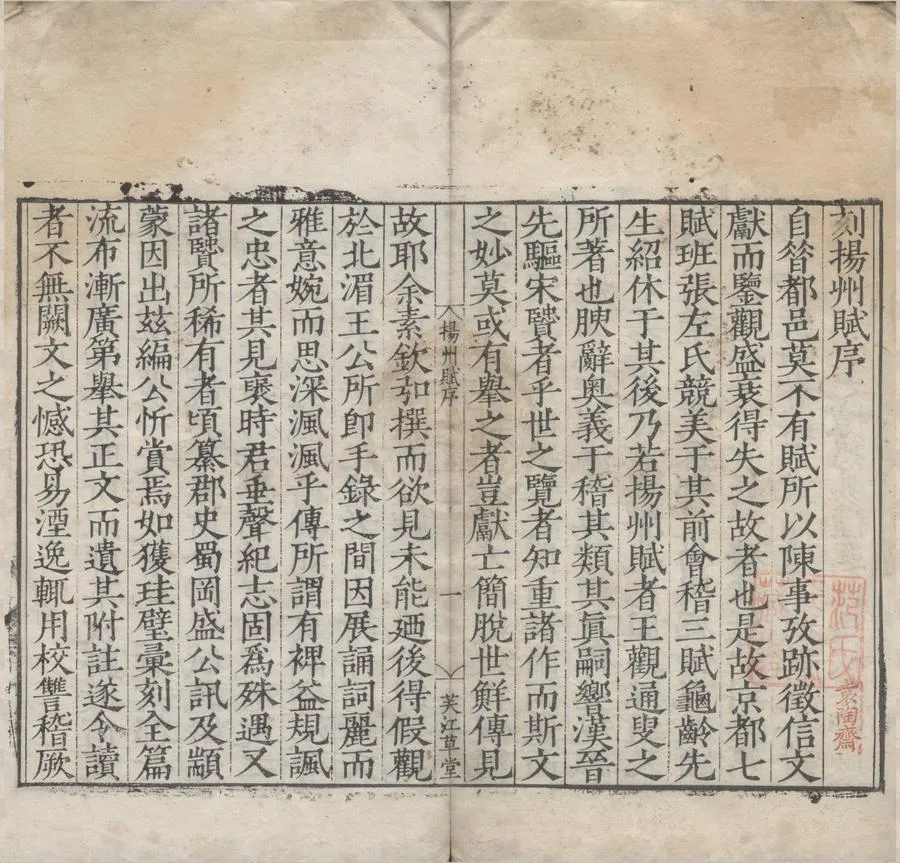 刻揚州賦序
自昝都邑莫不有賦所以陳事攷跡徵信文
獻而鑒觀盛衰得失之故者也是故京都七
賦班張左氏競美于其前會稽三賦龜齡先
生紹休于其後乃若揚州賦者王觀通叟之
所著也腴辭奥義于稽其類其眞嗣響漢晉
先驅宋賢者乎世之覽者知重諸作而斯文
之妙莫或有舉之者豈獻亡簡脫世鮮傳見
揚州賦序
一
芙江草堂
故耶余素欽弘撰而欲見未能廼後得假觀
於北湄王公所即手錄之間因展誦詞麗而
雅意婉而思深渢渢乎傳所謂有裨益規諷
之忠者其見褒時君垂聲紀志固爲殊遇又
諸賢所稀有者頃纂郡史蜀岡盛公訊及顓
蒙因出兹編公忻賞焉如獲珪璧彙刻全篇
流布漸廣第舉其正文而遺其附註遂令讀
者不無闕文之憾恐易湮逸輒用校讐稽厥